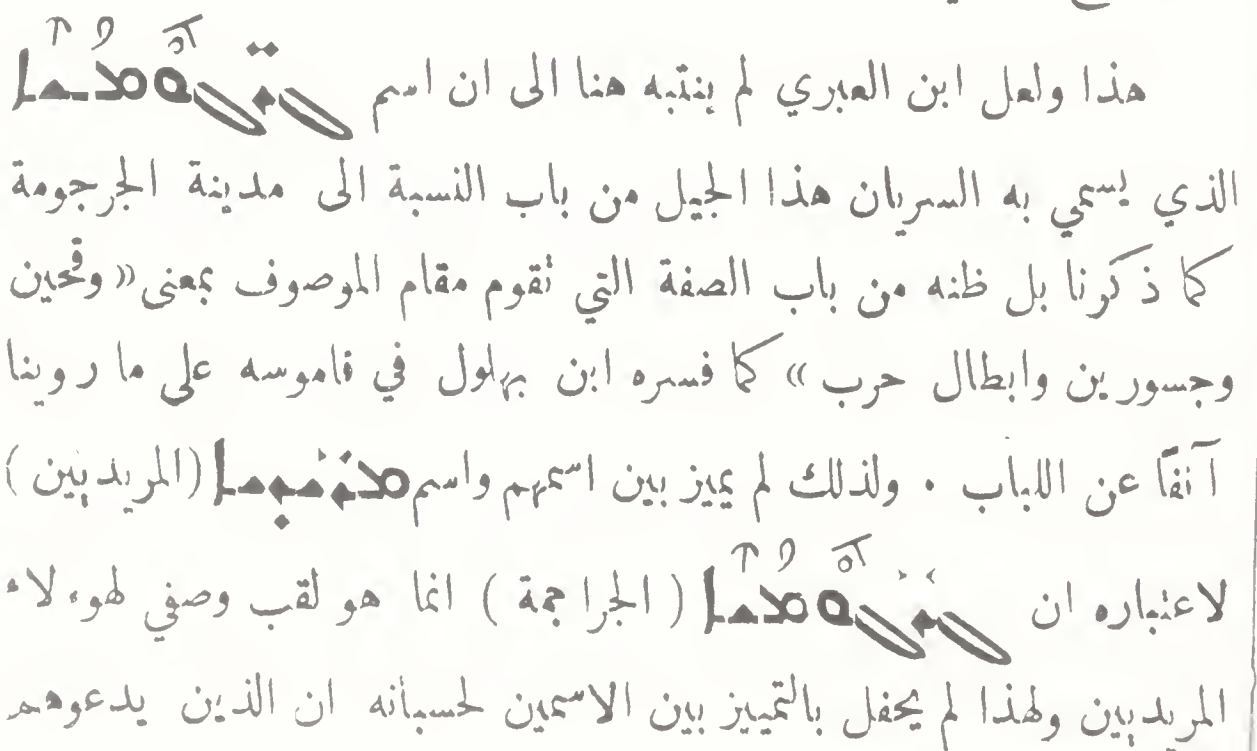 هذا ولعل ابن العبري لم ينتبه هنا الى ان اسم ܓܪ̈ܓܘܡܝܐ
الذي يسمي به السريان هذا الجيل من باب النسبة الى مدينة الجرجومة
كما ذكرنا بل ظنه من باب الصفة التي تقوم مقام الموصوف بمعنى « وقحين
وجسورين وابطال حرب » كما فسره ابن بهلول في قاموسه على ما روينا
آنفًا عن اللباب ٠ ولذلك لم يميز بين اسمهم واسم ܡܪ̈ܝܕܝܐ (المريديين)
لاعتباره ان ܓܪ̈ܓܘܡܝܐ ( الجراجمة ) انما هو لقب وصفي لهوءلاء
المريديين ولهذا لم يحفل بالتمييز بين الاسمين لحسبانه ان الذين يدعوهم